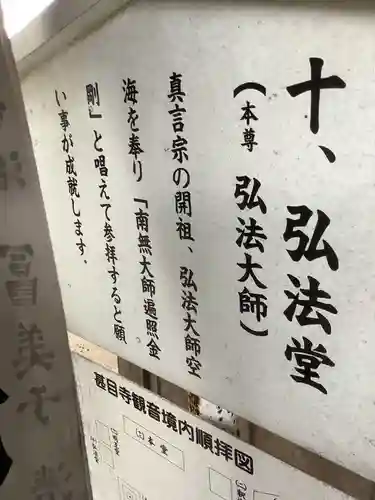 十、弘法堂
(本尊 弘法大師)
真言宗の開祖、弘法大師空
海を奉り「南無大師遍照金
剛』と唱えて参拝すると願
い事が成就します。
甚目寺観音境内順拝図
本堂